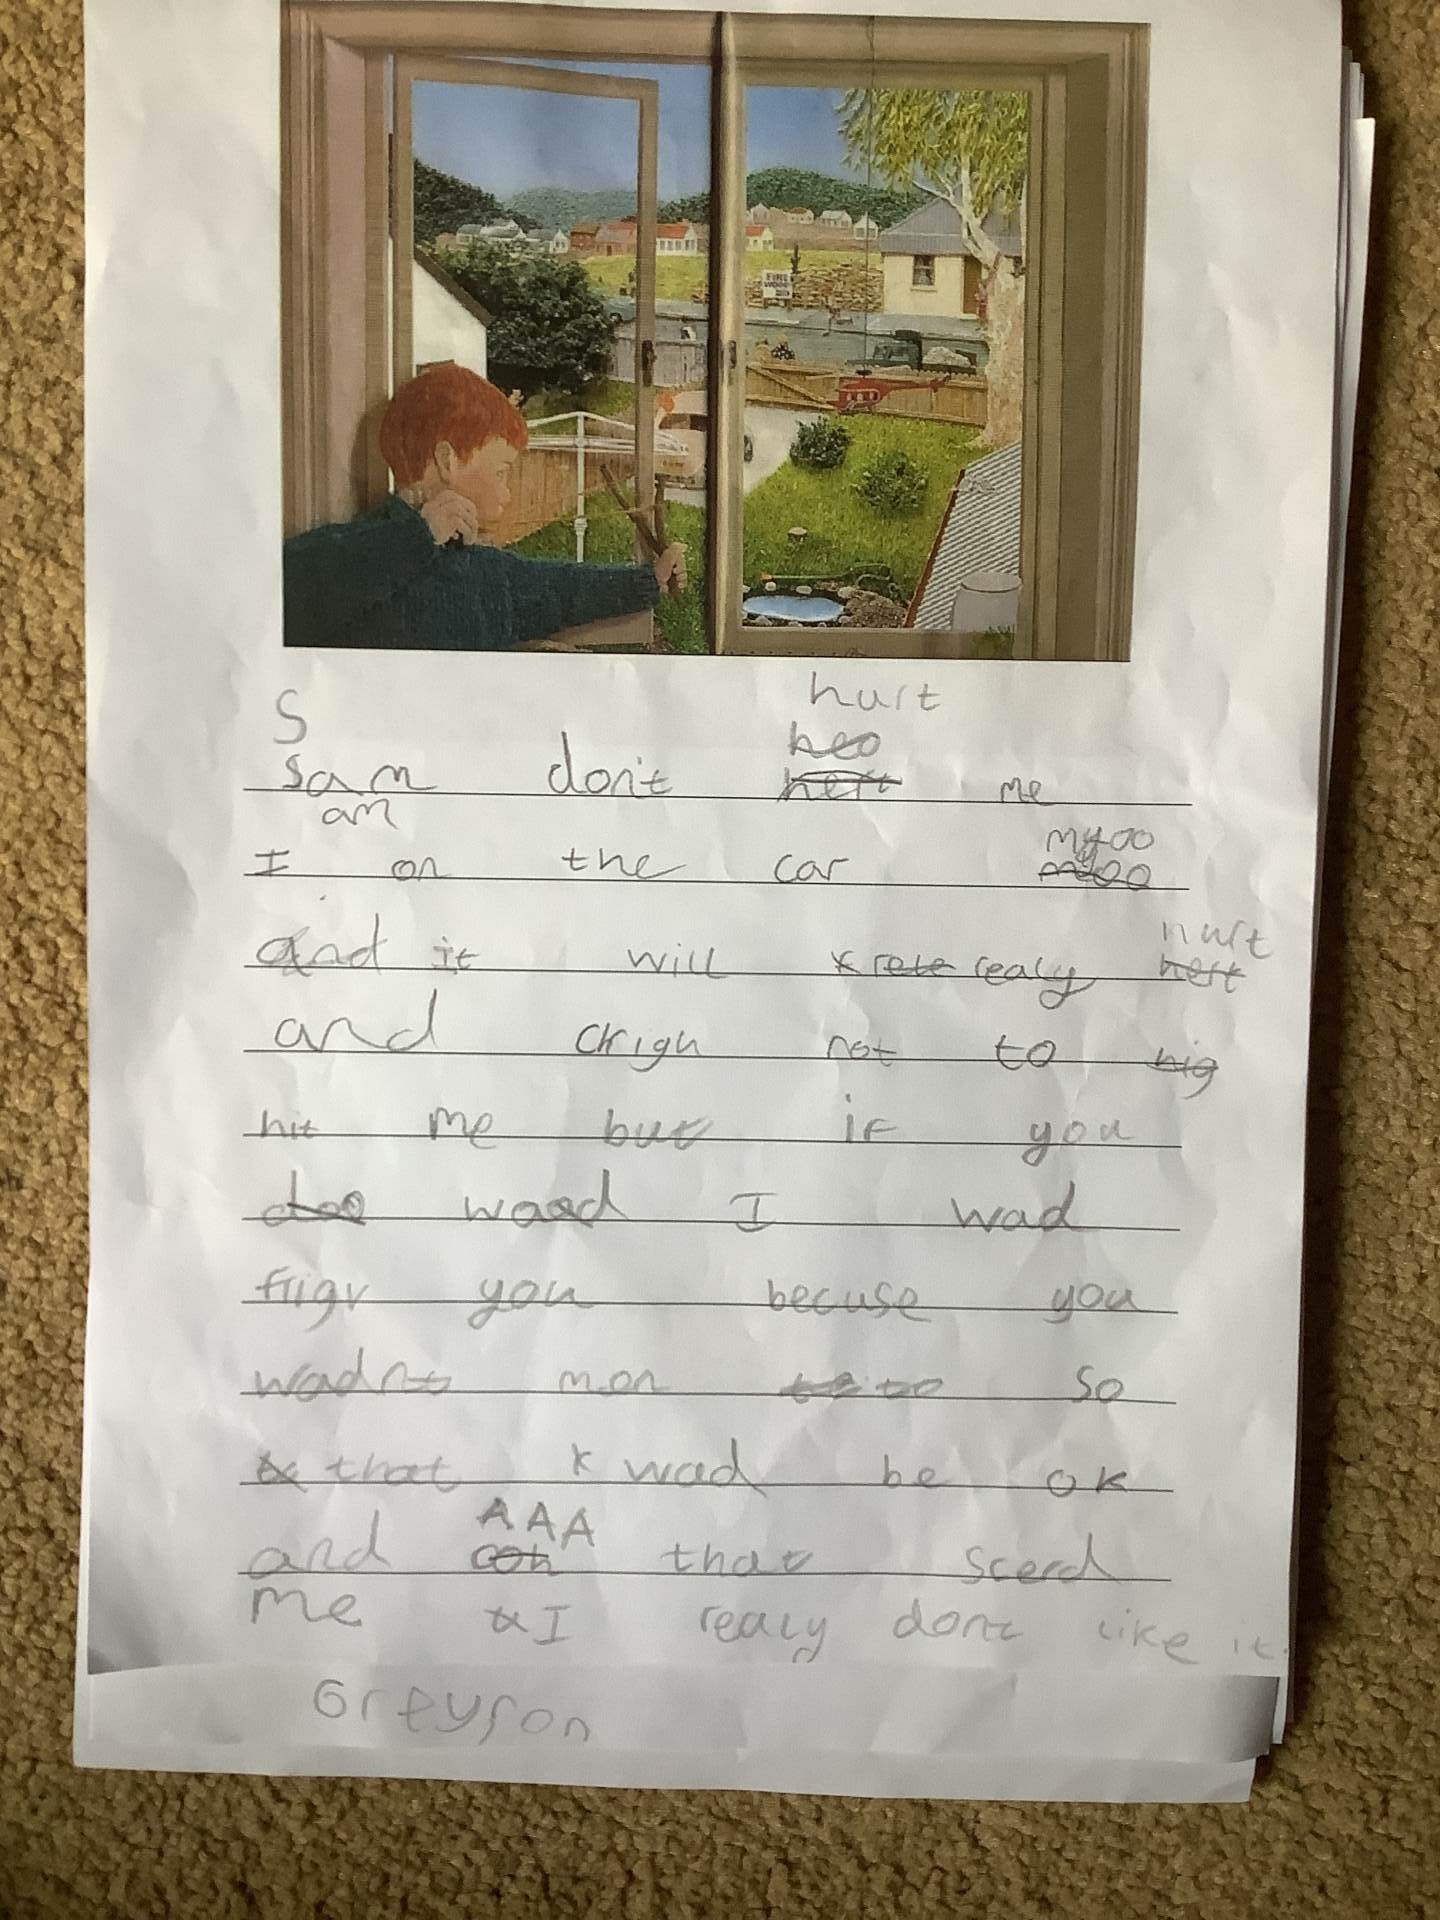 hurt
S heo
sam don't hert me
am myoo
I on the car myoo
hurt
And it will rele realy hert
and chrigh not to hig
hit me but if you
doo waad I wad
frigv you becuse you
wadnt mon to to so
that wad be ok
AAA
and coh that scerd
me I realy dont like it.
Greyson